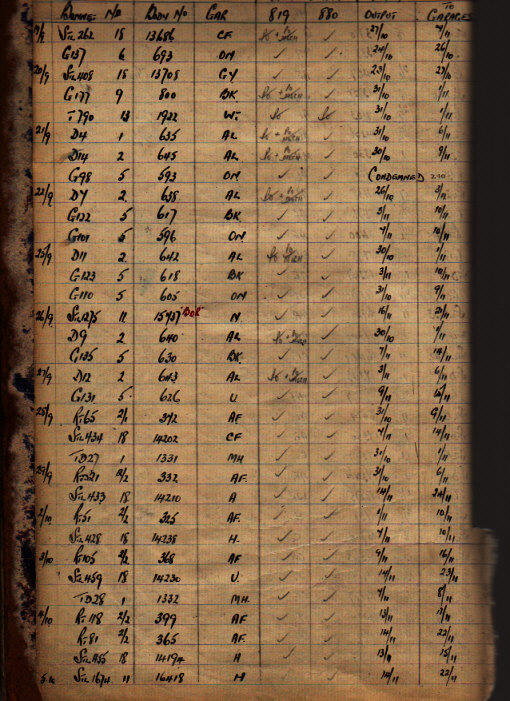 BONNET NO BODY NO GAR 819 880 OUTPUT TO GARAGES
/9 STL262 18 13686 CF 27/10
G137 6 693 ON ✓ ✓ 24/10 26/10
20/9 STL408 18 13708 GY ✓ ✓ 23/10 27/10
G177 9 800 BK ✓ 31/10 1/11
T790 13 1922 ✓ 31/10 1/11
21/9 D4 1 635 AL ✓ 31/10 6/11
D14 2 645 AL ✓ 30/10 9/11
G98 5 593 ON ✓ ✓ CONDEMNED
22/9 DY 2 638 AL ✓ 26/10 3/11
G122 5 617 BK ✓ ✓ 3/11 10/11
G101 5 596 ON ✓ ✓ 4/11 10/11
25/9 D11 2 642 AL ✓ 30/10 1/11
G123 5 618 BK ✓ ✓ 3/11 10/11
G110 5 605 ON ✓ ✓ 31/10 9/11
26/9 STL1275 11 15437 N ✓ ✓ 16/11
D9 2 640 AL ✓ 30/10
G135 5 630 BK ✓ ✓ 7/11 14/11
27/9 D12 2 643 AL ✓ 3/11 6/11
G131 5 626 U ✓ ✓ 9/11
28/9 RT65 2/2 342 AF ✓ ✓ 31/10 9/11
STL434 18 14202 CF ✓ ✓ 4/11 14/11
TD27 1 1331 MH ✓ ✓ 31/10 1/11
29/9 332 AF ✓ ✓ 31/10 6/11
STL433 18 14210 A ✓ ✓ 14/11 24/11
2/10 RT51 2/2 325 AF ✓ ✓ 1/11 10/11
STL428 18 14238 H ✓ ✓ 4/11 10/11
3/10 RT105 2/2 368 AF ✓ ✓ 9/11 16/11
STL459 18 14230 U ✓ ✓ 14/11 23/11
TD28 1 1332 MH ✓ ✓ 4/11 8/11
4/10 RT118 2/2 399 AF ✓ ✓ 13/11 17/11
RT81 2/2 365 AF ✓ ✓ 14/11 22/11
STL455 18 14194 H ✓ ✓ 13/11 15/11
STL1674 11 16418 H ✓ ✓ 14/11 22/11